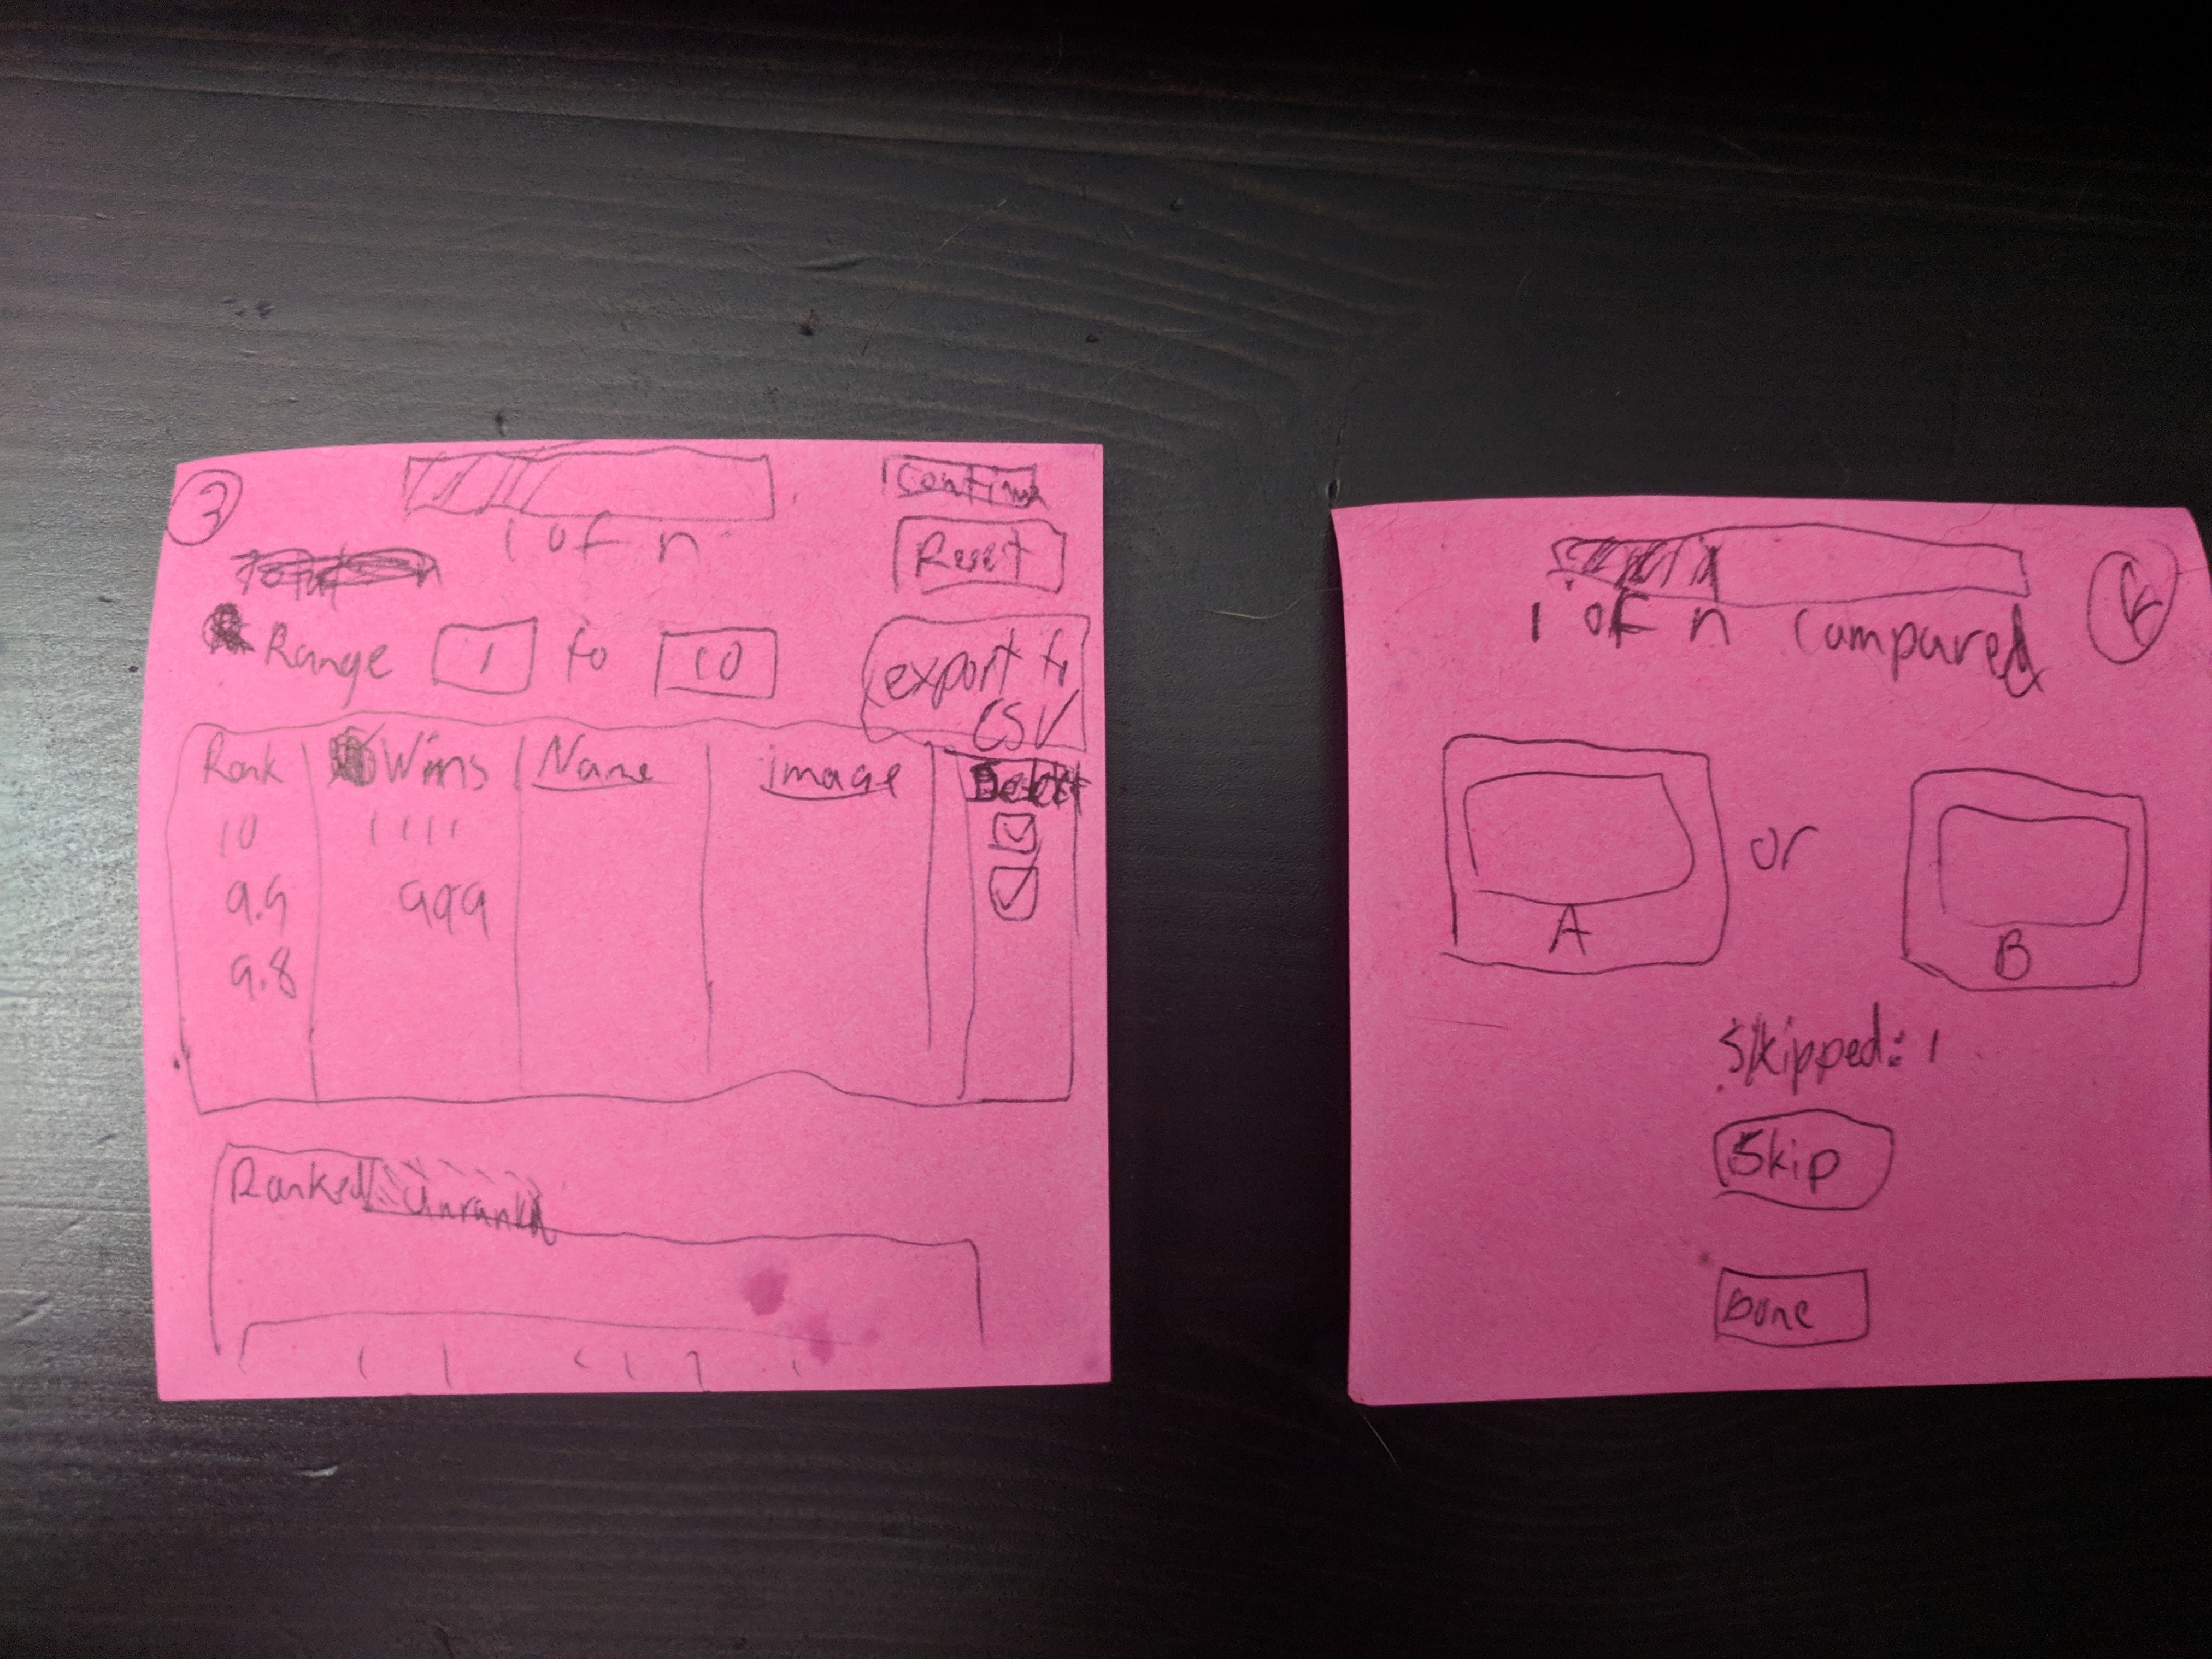 3
Continue
1 of n
Reset
Range 1 to 10
export to
CSV
Rank Wins Name image Delete
10 1111
9.9 999
9.8
Ranked Unranked
2
1 of n compared
or
A
B
Skipped: 1
Skip
Done